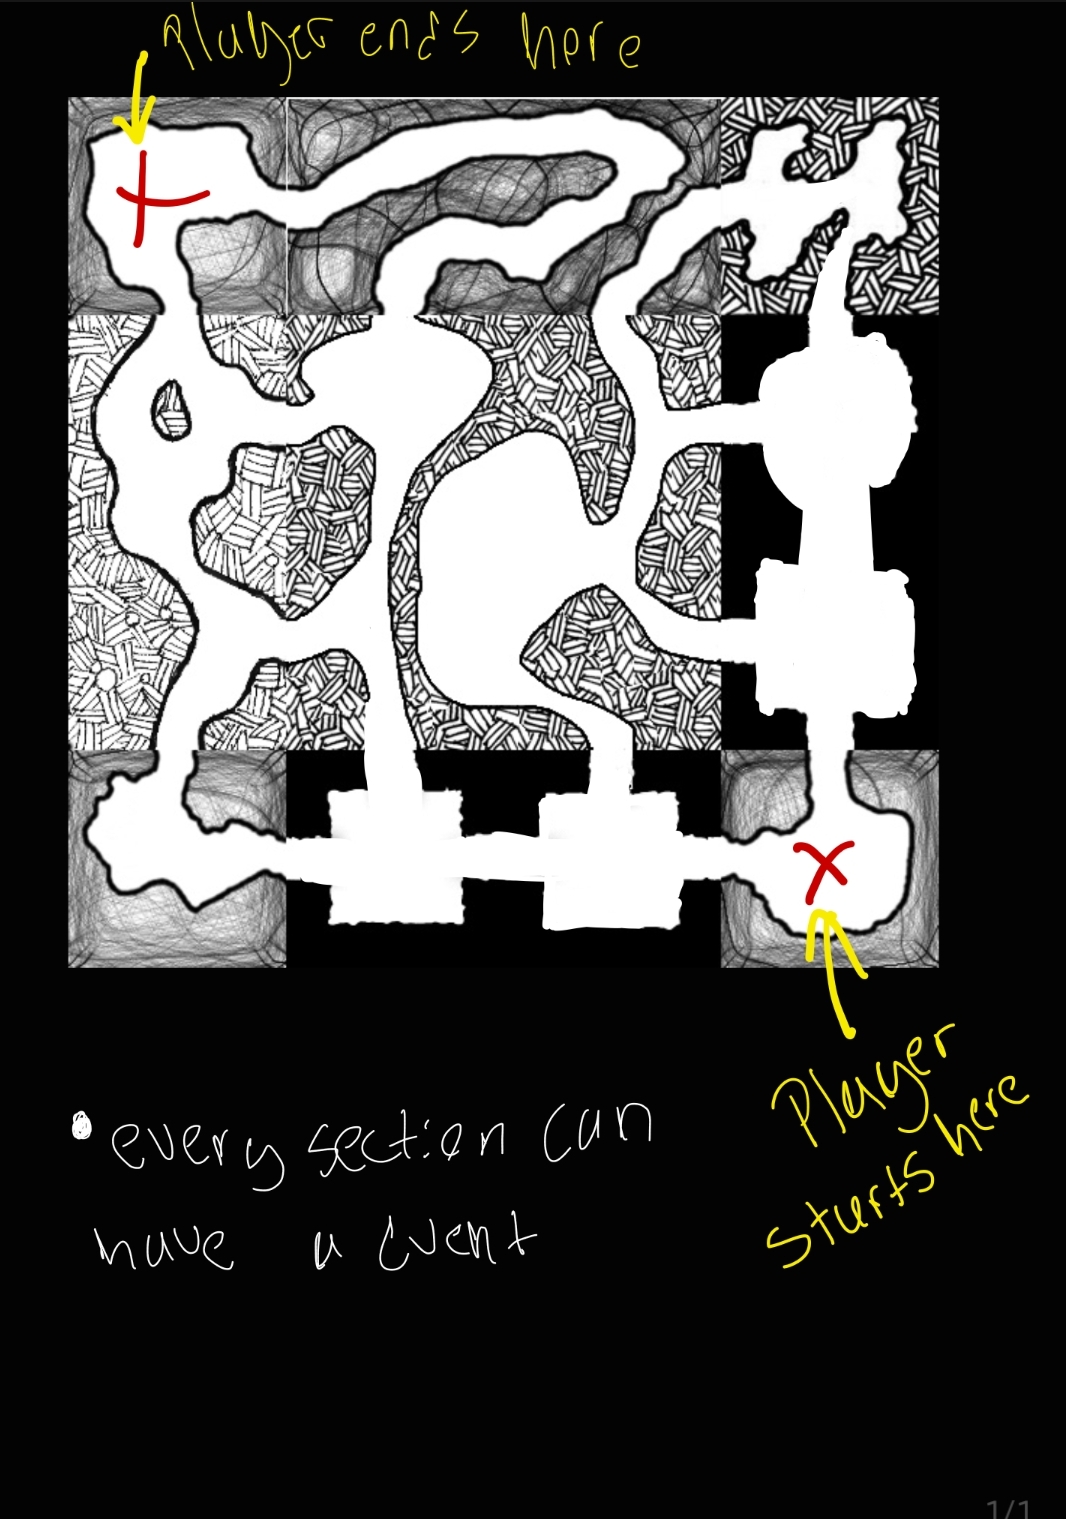 Player ends here
Player
starts here
• every section can
have a event
1/1